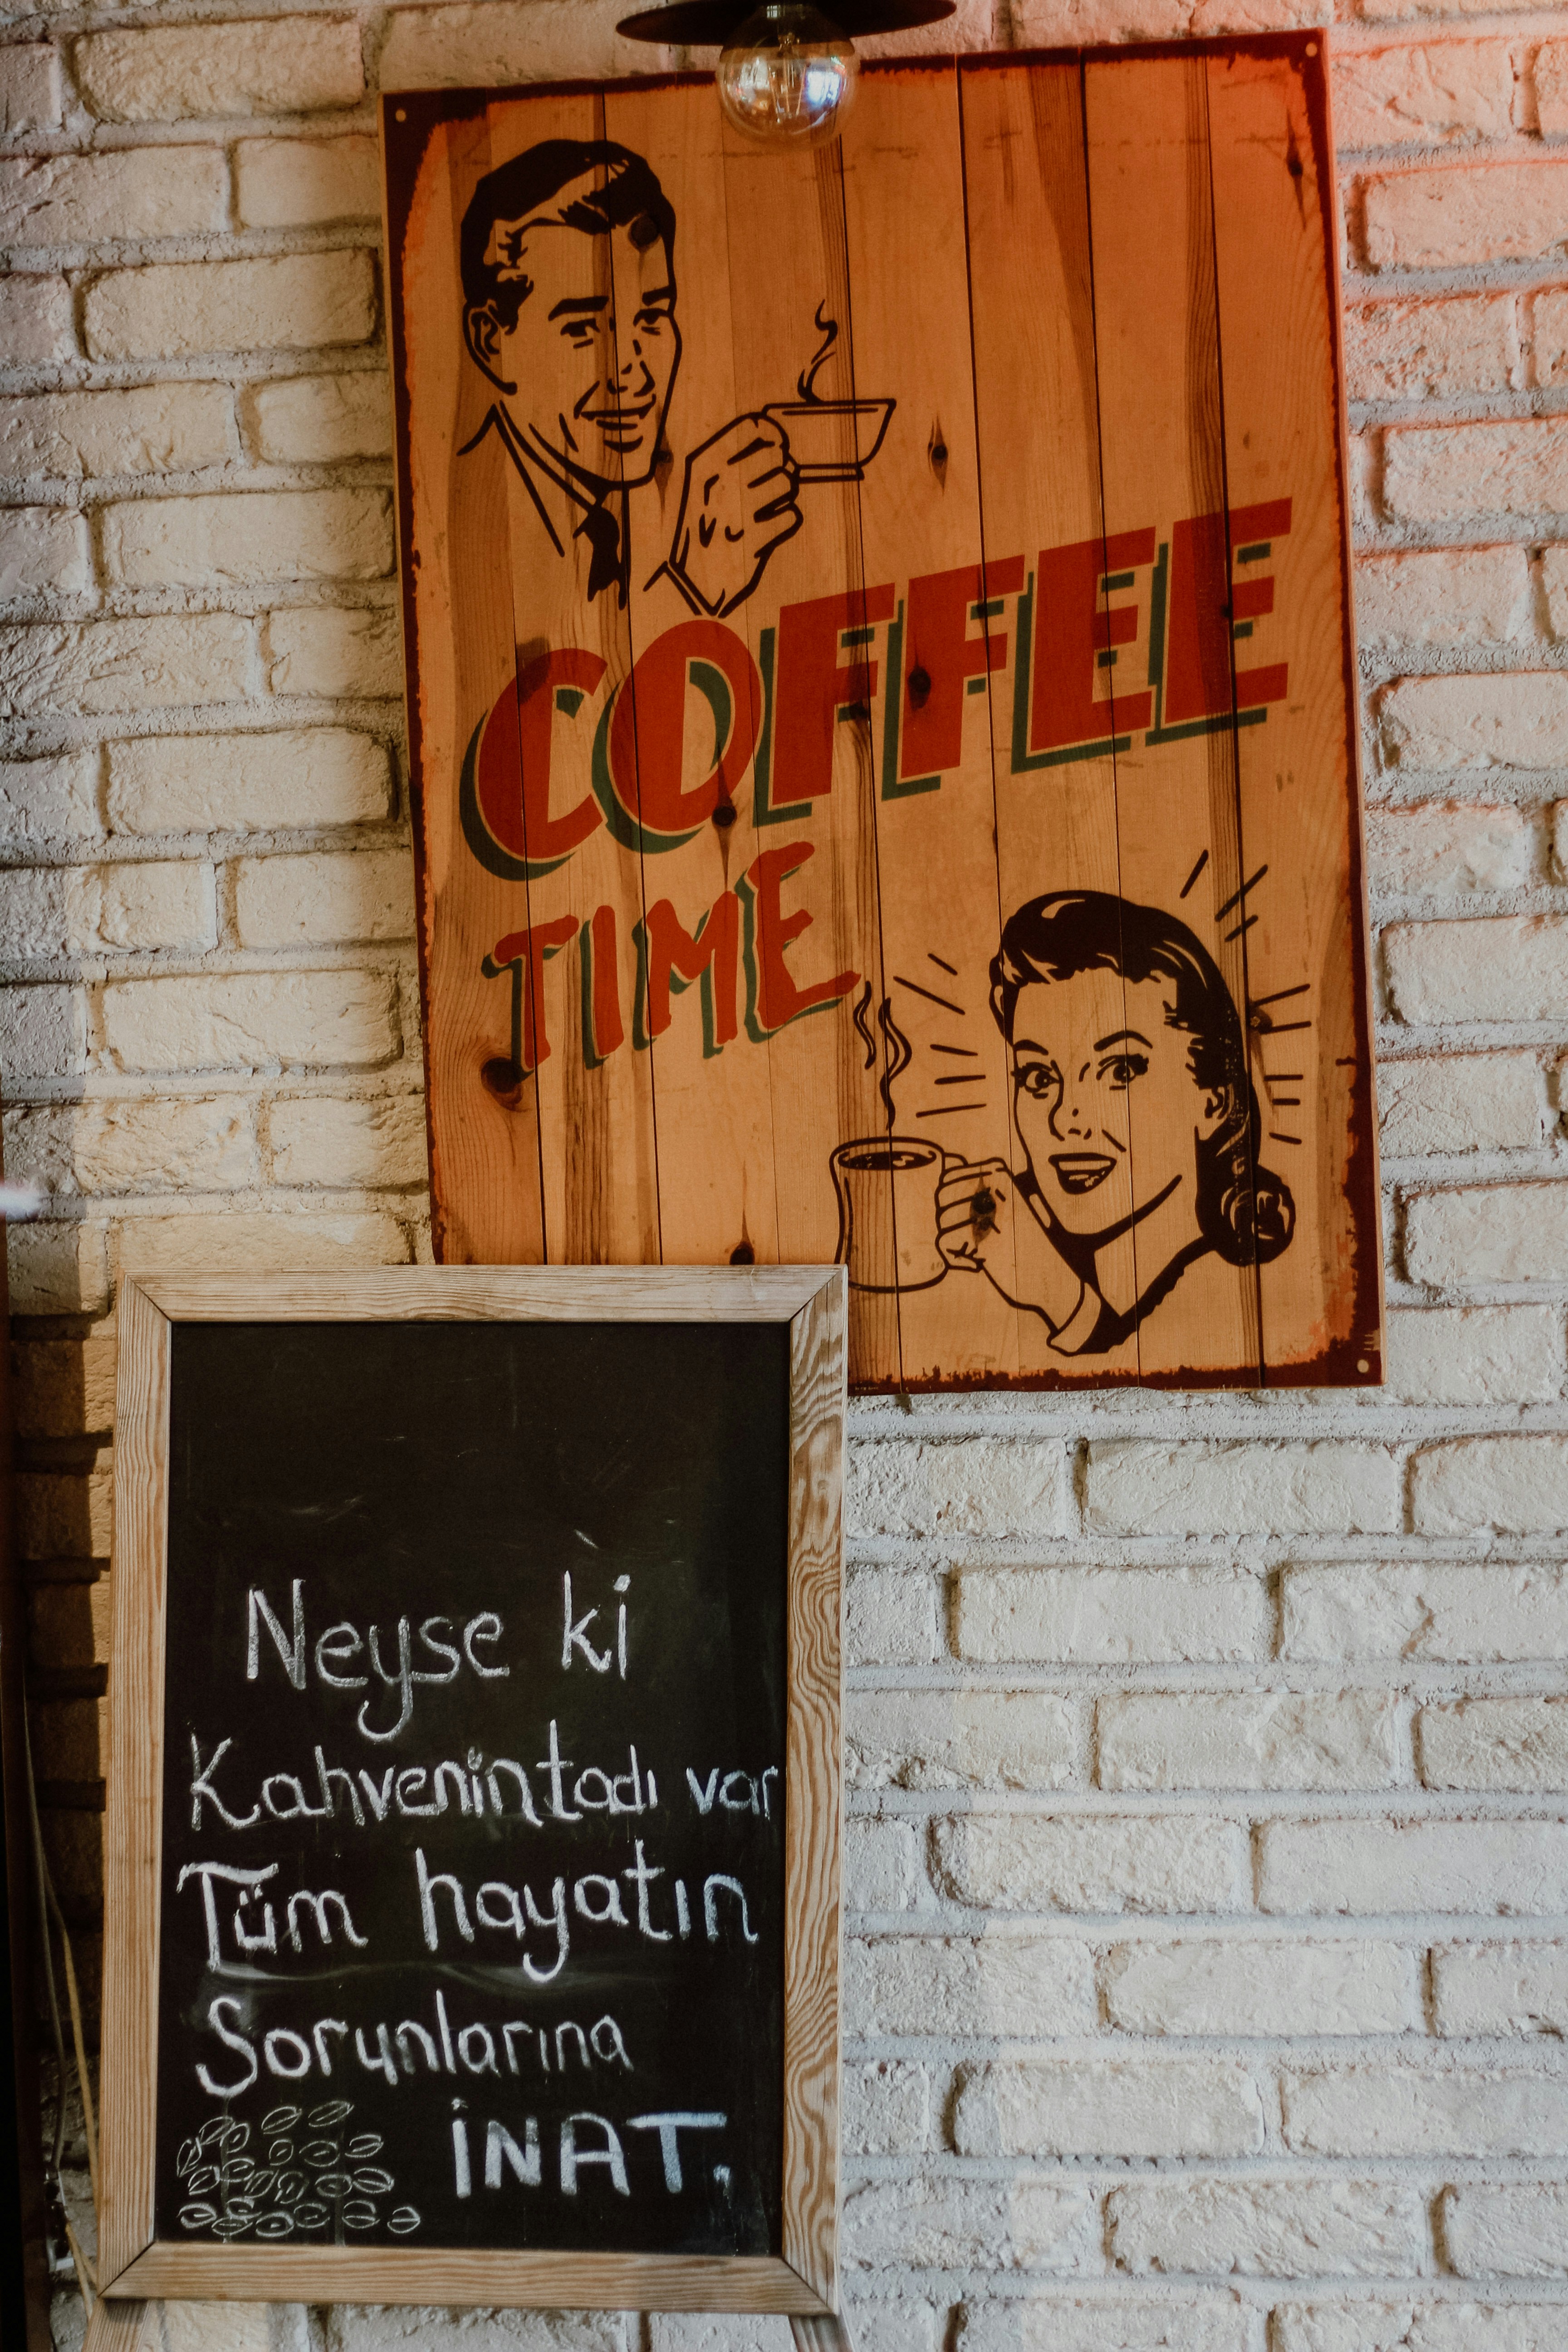 COFFEE
TIME
Neyse ki
Kahvenin tadı var
Tüm hayatın
Sorunlarına
İNAT.